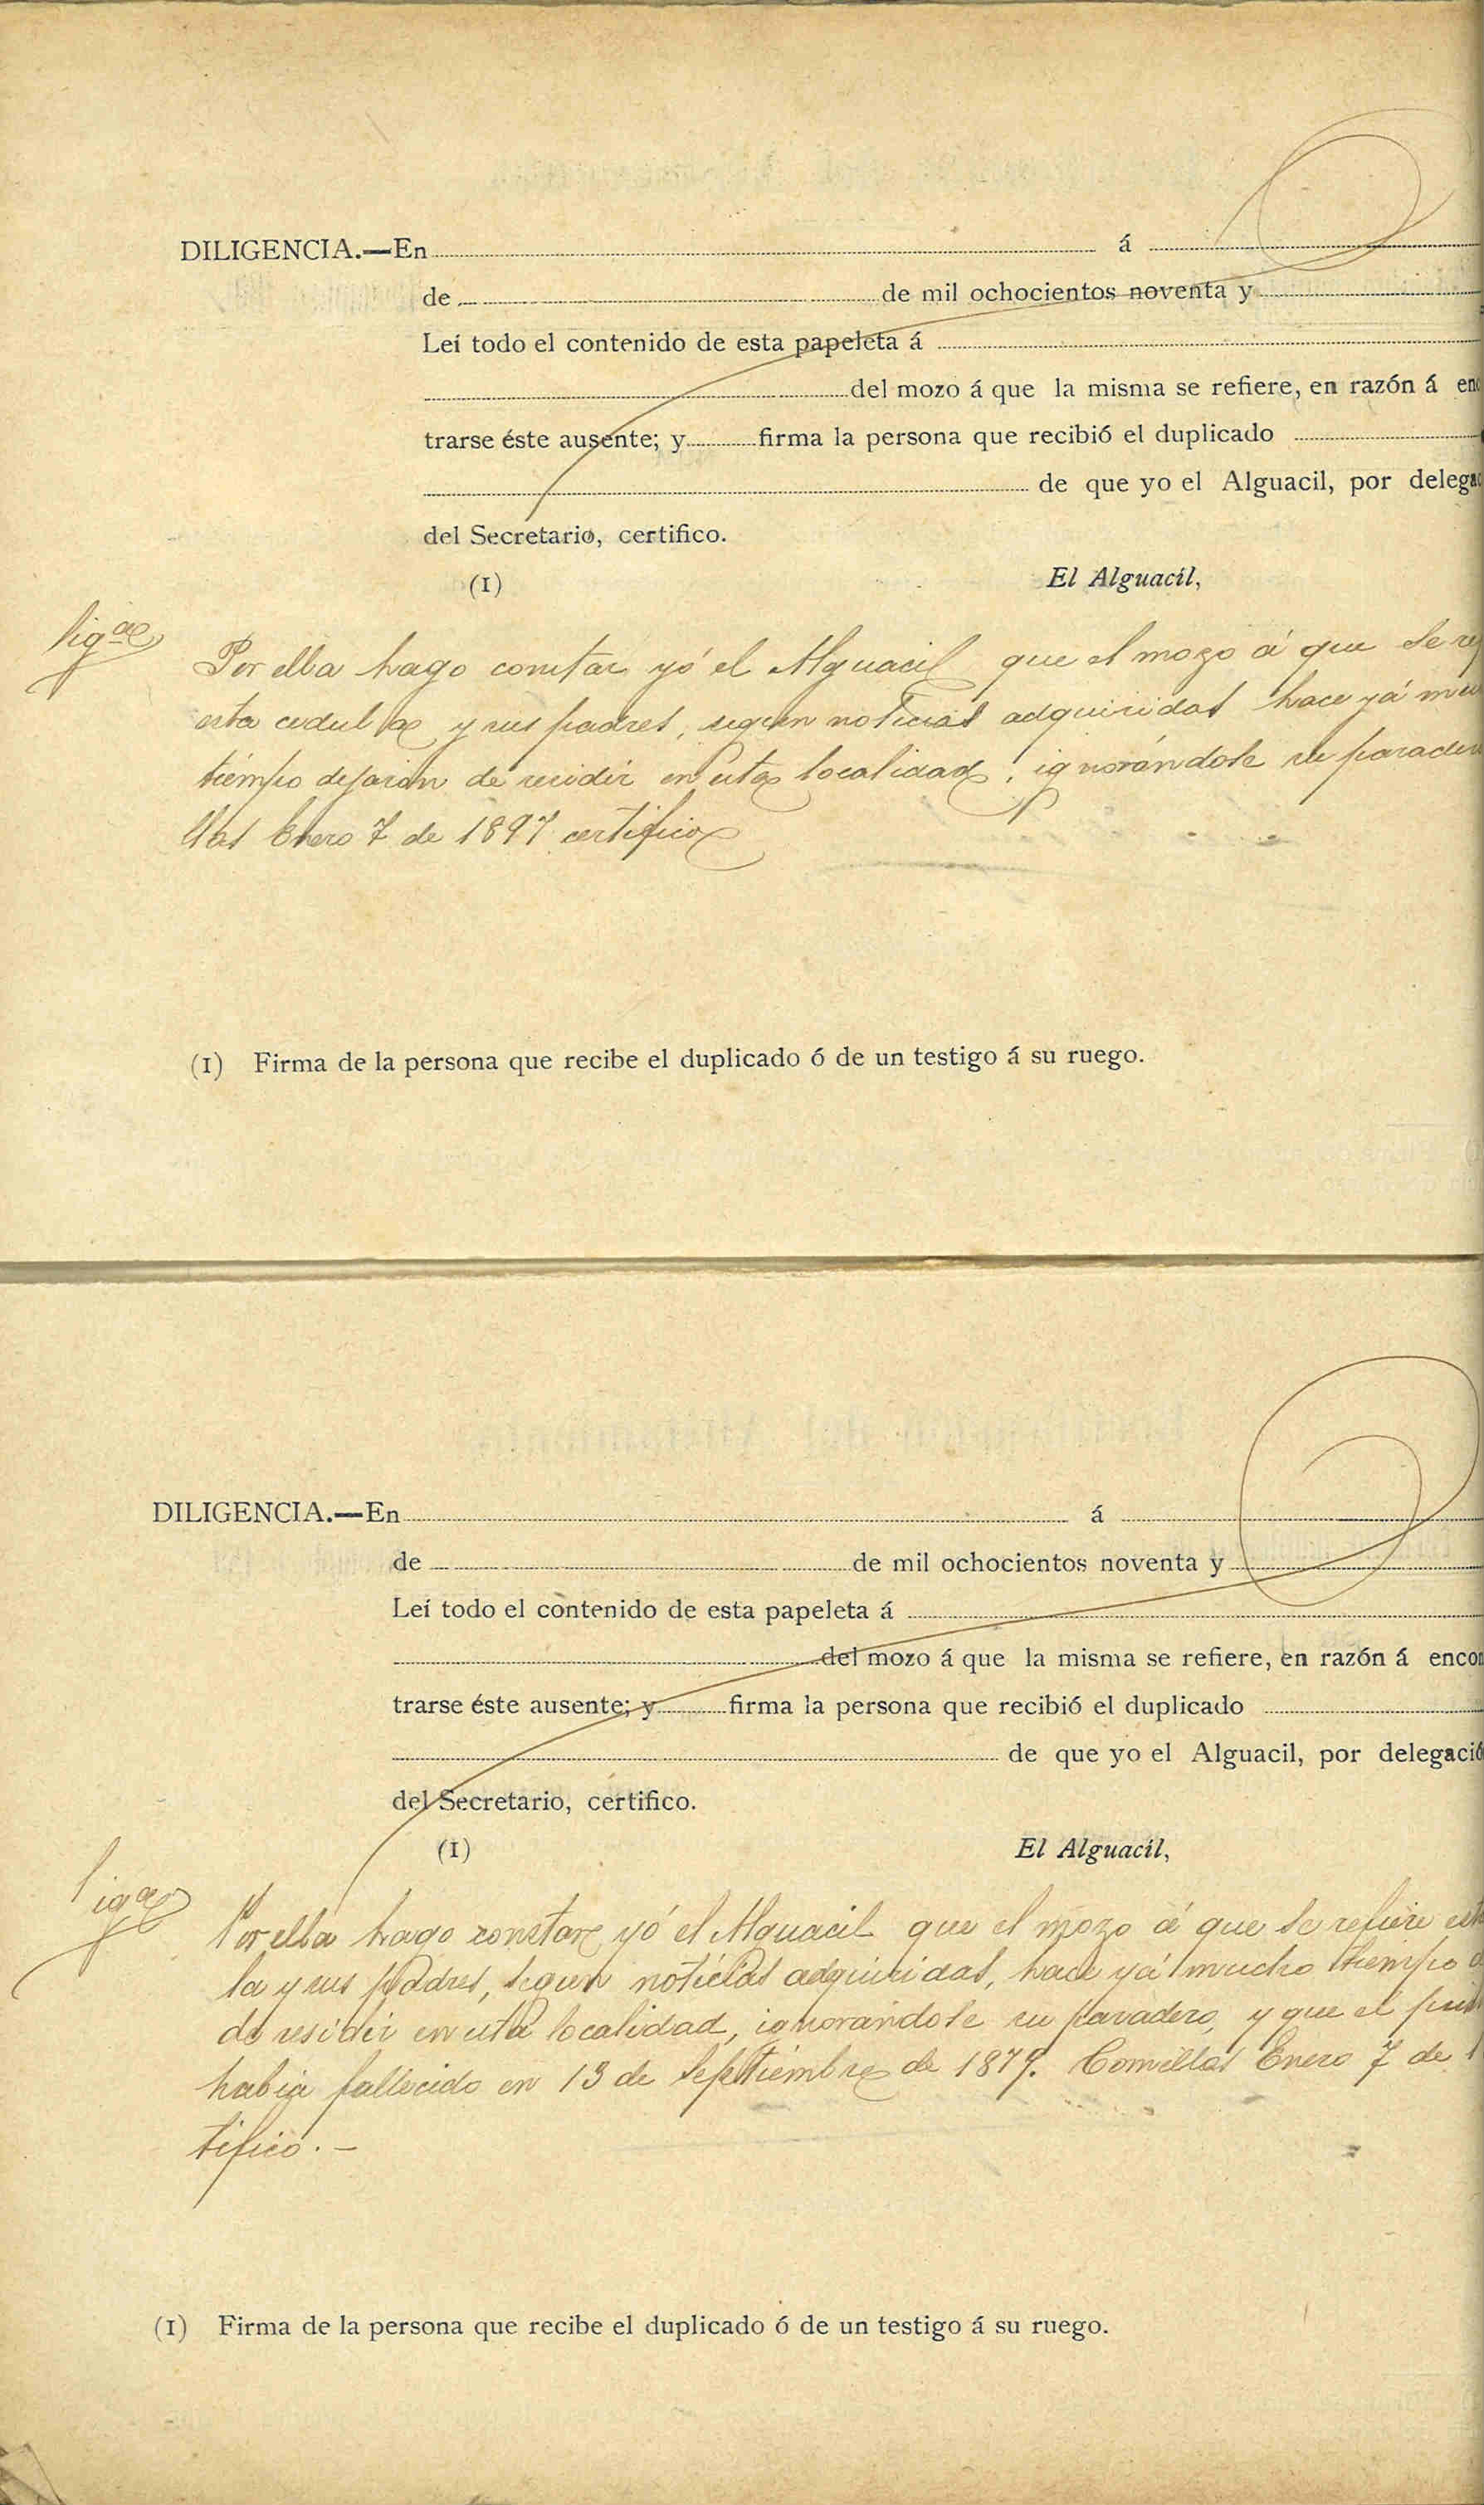 DILIGENCIA.—En á
de de mil ochocientos noventa y
Leí todo el contenido de esta papeleta á
del mozo á que la misma se refiere, en razón á enc
trarse éste ausente; y firma la persona que recibió el duplicado
de que yo el Alguacil, por delegac
del Secretario, certifico.
(1) El Alguacil,
ligª
Por ella hago constar yó el Alguacil que el mozo á que se ref
esta cedula y sus padres, segun noticias adquiridas hace yá muc
tiempo dejaron de residir en esta localidad, ignorándose su parader
llas Enero 7 de 1897 certifico
(1) Firma de la persona que recibe el duplicado ó de un testigo á su ruego.
DILIGENCIA.—En á
de de mil ochocientos noventa y
Leí todo el contenido de esta papeleta á
del mozo á que la misma se refiere, en razón á encon
trarse éste ausente; y firma la persona que recibió el duplicado
de que yo el Alguacil, por delegació
del Secretario, certifico.
(1) El Alguacil,
ligª
Por ella hago constar yó el Alguacil que el mozo á que se refiere est
la y sus padres, segun noticias adquiridas, hace yá mucho tiempo d
de residir en esta localidad, ignorándose su paradero, y que el
habia fallecido en 13 de Septiembre de 1879. Comillas Enero 7 de 1
tifico.—
(1) Firma de la persona que recibe el duplicado ó de un testigo á su ruego.